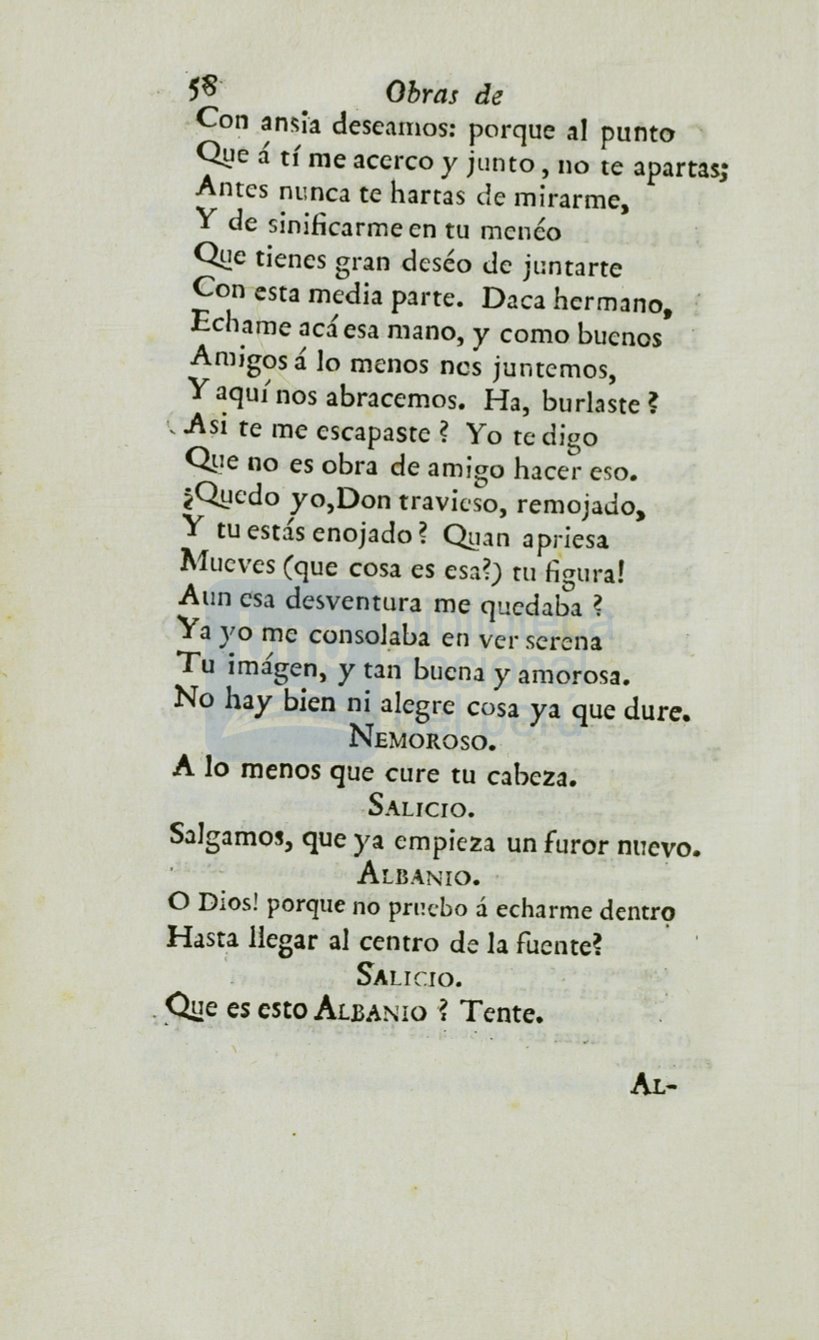 58 Obras de
Con ansia deseamos: porque al punto
Que á tí me acerco y junto, no te apartas;
Antes nunca te hartas de mirarme,
Y de sinificarme en tu menéo
Que tienes gran deséo de juntarte
Con esta media parte. Daca hermano,
Echame acá esa mano, y como buenos
Amigos á lo menos nos juntemos,
Y aquí nos abracemos. Ha, burlaste?
Asi te me escapaste? Yo te digo
Que no es obra de amigo hacer eso.
¿Quedo yo, Don travieso, remojado,
Y tu estás enojado? Quan apriesa
Mueves (que cosa es esa?) tu figura!
Aun esa desventura me quedaba?
Ya yo me consolaba en ver serena
Tu imágen, y tan buena y amorosa.
No hay bien ni alegre cosa ya que dure.
NEMOROSO.
A lo menos que cure tu cabeza.
SALICIO.
Salgamos, que ya empieza un furor nuevo.
ALBANIO.
O Dios! porque no pruebo á echarme dentro
Hasta llegar al centro de la fuente?
SALICIO.
Que es esto ALBANIO? Tente.
AL-